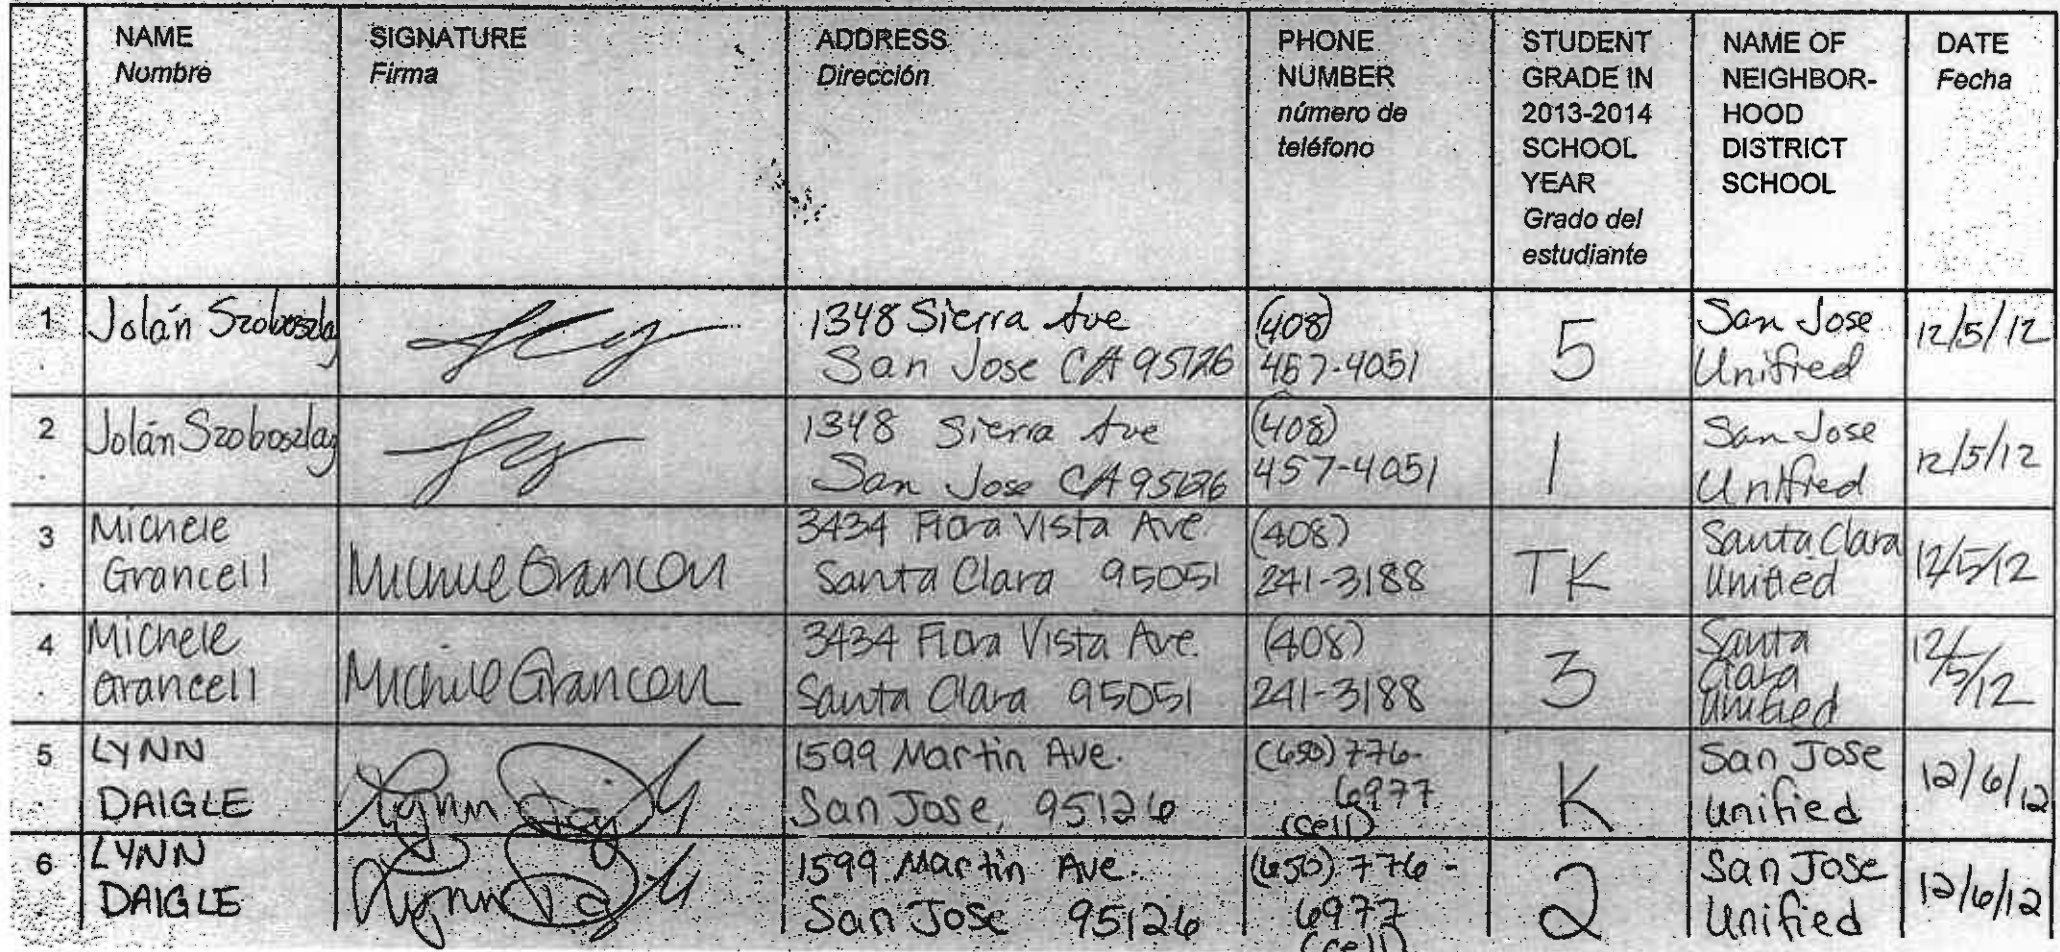 NAME
Nombre
SIGNATURE
Firma
ADDRESS
Dirección
PHONE
NUMBER
número de
teléfono
STUDENT
GRADE IN
2013-2014
SCHOOL
YEAR
Grado del
estudiante
NAME OF
NEIGHBOR-
HOOD
DISTRICT
SCHOOL
DATE
Fecha
1
Jolán Szoboszlay
1348 Sierra Ave
San Jose CA 95126
(408)
457-4051
5
San Jose
Unified
12/5/12
2
Jolán Szoboszlay
1348 Sierra Ave
San Jose CA 95126
(408)
457-4051
1
San Jose
Unified
12/5/12
3
Michele
Grancell
Michele Grancell
3434 Flora Vista Ave.
Santa Clara 95051
(408)
241-3188
TK
Santa Clara
Unified
12/5/12
4
Michele
Grancell
Michele Grancell
3434 Flora Vista Ave.
Santa Clara 95051
(408)
241-3188
3
Santa
Clara
Unified
12/
5/12
5
LYNN
DAIGLE
Lynn Daigle
1599 Martin Ave.
San Jose, 95126
(650) 776-
6977
(cell)
K
San Jose
Unified
12/6/12
6
LYNN
DAIGLE
Lynn Daigle
1599 Martin Ave.
San Jose 95126
(650) 776-
6977
(cell)
2
San Jose
Unified
12/6/12